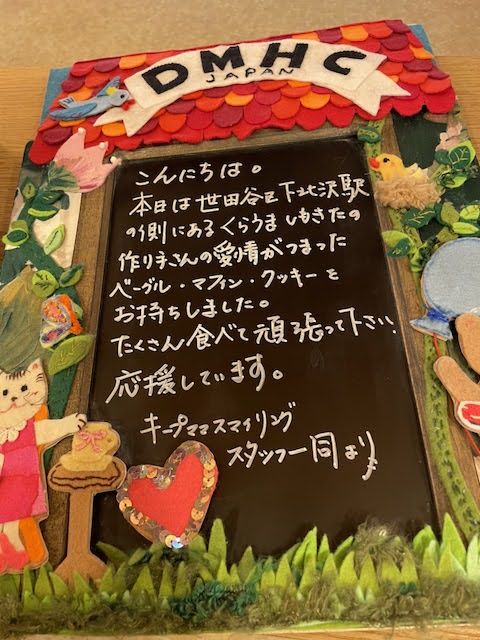 DMHC
JAPAN
こんにちは。
本日は世田谷区下北沢駅
の側にあるくらうましもきたの
作り手さんの愛情がつまった
ベーグル・マフィン・クッキーを
お持ちしました。
たくさん食べて頑張って下さい。
応援しています。
キープママスマイリング
スタッフ一同より